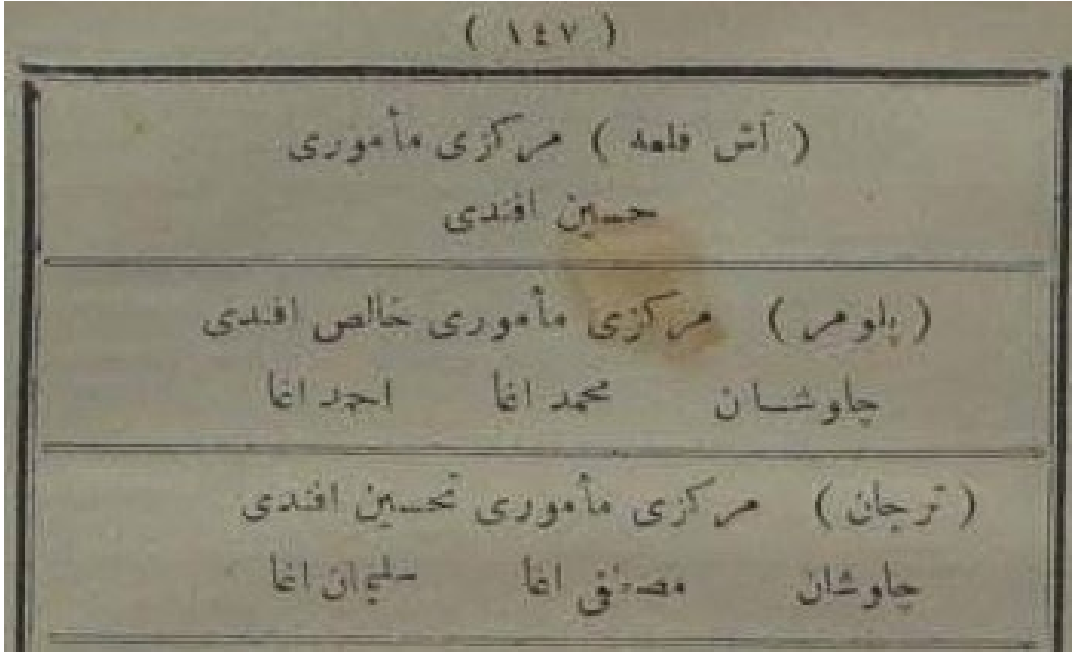 ( ١٤٧ )
( آش قلعه ) مركزى مأمورى
حسين افندى
( پلومر ) مركزى مأمورى خالص افندى
چاوشان محمد اغا احمد اغا
( ترجان ) مركزى مأمورى تحسين افندى
چاوشان مصطفى اغا سليمان اغا